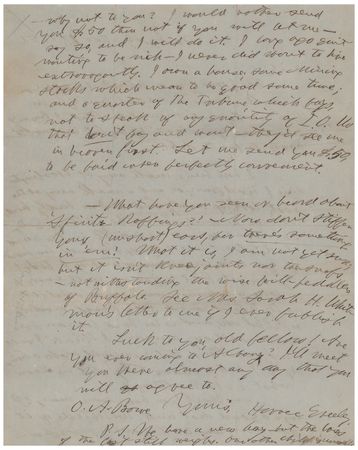 why not to you? I would rather send
you $50 than not if you will let me—
say so, and I will do it. I long ago quit
wanting to be rich—I never did want to live
extravagantly. I own a house, some Mining
stocks which mean to be good some time,
and a quarter of the Tribune, which pays,
not to speak of any quantity of I.O. Us
that don't pay and won't—they'd see me
in heaven first. Let me send you $50
to be paid when perfectly convenient.
—What have you seen or heard about
'Spirit Rappings?'—Now don't stuff
your ears, for there's something
in 'em! What it is, I am not yet
but it isn't knee joints nor toe
notwithstanding the
of Buffalo. See Mrs. Sarah H. Whit-
man's letter to me if I ever publish
it.
Luck to you, old fellow! Are
you ever coming to Albany? I'll meet
you there almost any day that you
will agree to.
O. A. Bowe Yours, Horace Greeley
P.S. We have a new boy—but the loss
of the still weighs. One other child